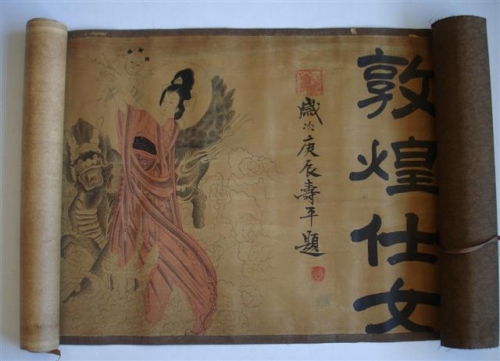 敦煌仕女
歲次庚辰壽平題